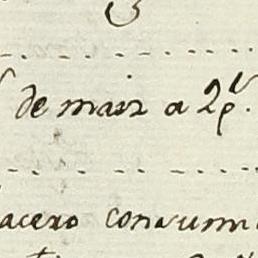 de maiz a 2p.
acero consumi